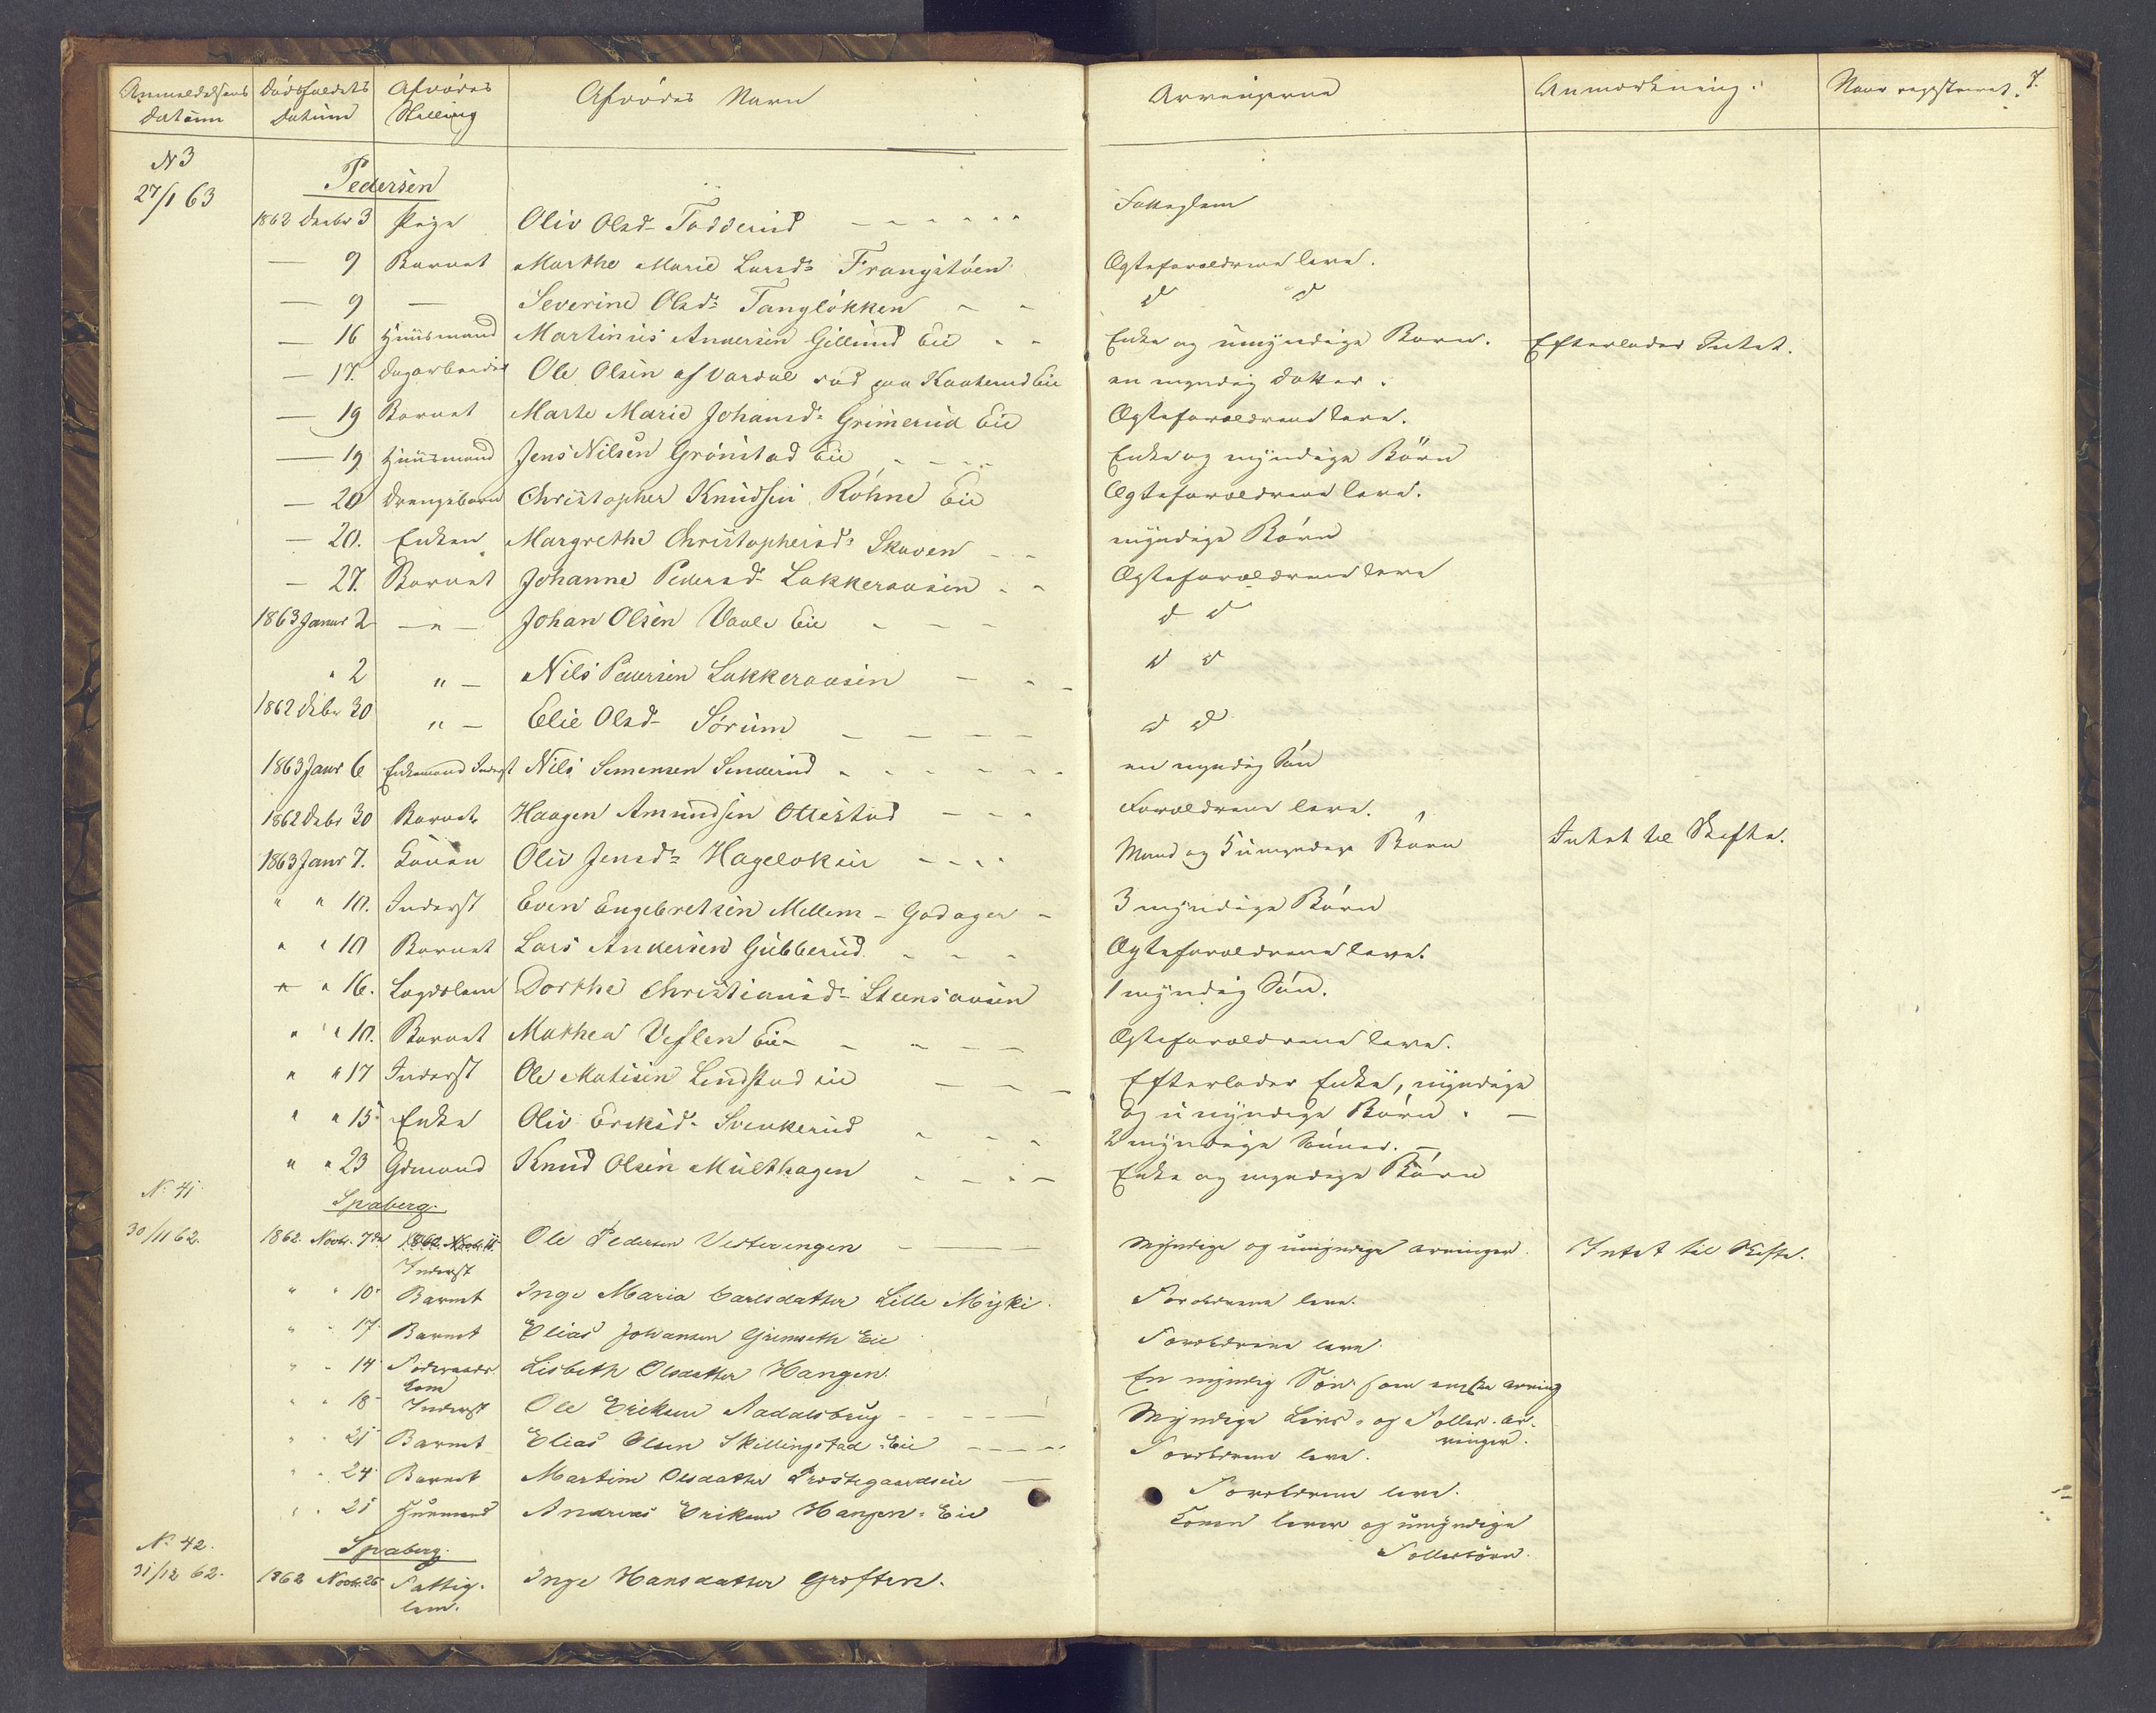 Anmeldelsens Datum | Dødsfaldets Datum | Afdødes Stilling | Afdødes Navn | Arvingerne | Anmærkning: | Naar registreret. | 7.
N 3
27/1 63 | Pedersen
1862 Decbr 3 | Pige | Oliv Olsd. Todderud | Fattiglem
— 9 | Barnet | Marthe Marie Larsd. Frangstøen | Ægteforældrene leve.
— 9 | — | Severine Olsd. Tangløkken | do do
— 16 | Huusmand | Martinus Andersen Gillund Eie | Enke og umyndige Børn. | Efterlader Intet.
— 17. | Dagarbeider | Ole Olsen af Vardal død paa Kaaterud Eie | en myndig Datter.
— 19 | Barnet | Marte Marie Johansd. Grimerud Eie | Ægteforældrene leve.
— 19 | Huusmand | Jens Nilsen Grønstad Eie | Enke og myndige Børn
— 20 | Drengebarn | Christopher Knudsen Rohne Eie | Ægteforældrene leve.
— 20. | Enken | Margrethe Christophersd. Skaven | myndige Børn
— 27. | Barnet | Johanne Pedersd. Lakkeraasen | Ægteforældrene leve
1863 Januar 2 | — " — | Johan Olsen Vaale Eie | do do
" 2 | " — | Nils Pedersen Lakkeraasen | do do
1862 Debr 30 | " — | Elie Olsd. Sørum | do do
1863 Janr 6 | Enkemand Inderst | Nils Semensen Senderud | en myndig Søn
1862 Debr 30 | Barnet | Haagen Amundsen Ottestad | Forældrene leve.
1863 Janr 7. | Konen | Oliv Jensd. Hageløkken | Mand og 5 umyndige Børn | Intet til Skifte.
" " 10. | Inderst | Even Engebretsen Mellem-Godager | 3 myndige Børn
" " 10 | Barnet | Lars Andersen Gubberud | Ægteforældrene leve.
" " 16. | Lægdslem | Dorthe Christiansd. Steensaasen | 1 myndig Søn.
" " 10. | Barnet | Mathea Veflen Eie | Ægteforældrene leve.
" " 17 | Inderst | Ole Matisen Lindstad eie | Efterlader Enke, myndige
og umyndige Børn. —
" " 15 | Enke | Oliv Eriksd. Svenkerud | 2 myndige Sønner. —
" " 23 | Gdmand | Knud Olsen Multhagen | Enke og myndige Børn
N. 41. | Spaberg.
30/11 62. | 1862. Novbr. 7de | Inderst | Ole Pedersen Vesterengen | Myndige og umyndige arvinger. | Intet til Skifte.
" " 10. | Barnet | Inge Maria Carlsdatter Lille Myki. | Forældrene leve.
" " 17. | Barnet | Elias Johansen Grimseth Eie | Forældrene leve.
" " 14. | Føderaads Kone | Lisbeth Olsdatter Hangen. | En myndig Søn som eneste arving
" " 18 | Inderst | Ole Eriksen Aadalsbrug | Myndige Livs- og Fælles-ar-
vinger.
" " 21 | Barnet | Elias Olsen Skillingstad Eie | Forældrene leve.
" " 24 | Barnet | Martine Olsdatter Prestegaardseie | Forældrene leve.
" " 25 | Husmand | Andreas Eriksen Hangen-Eie | Konen lever og umyndige
Fællesbørn.
N. 42. | Spaberg.
31/12 62. | 1862 Novbr. 26 | Fattig-lem. | Inge Hansdatter Grøften.